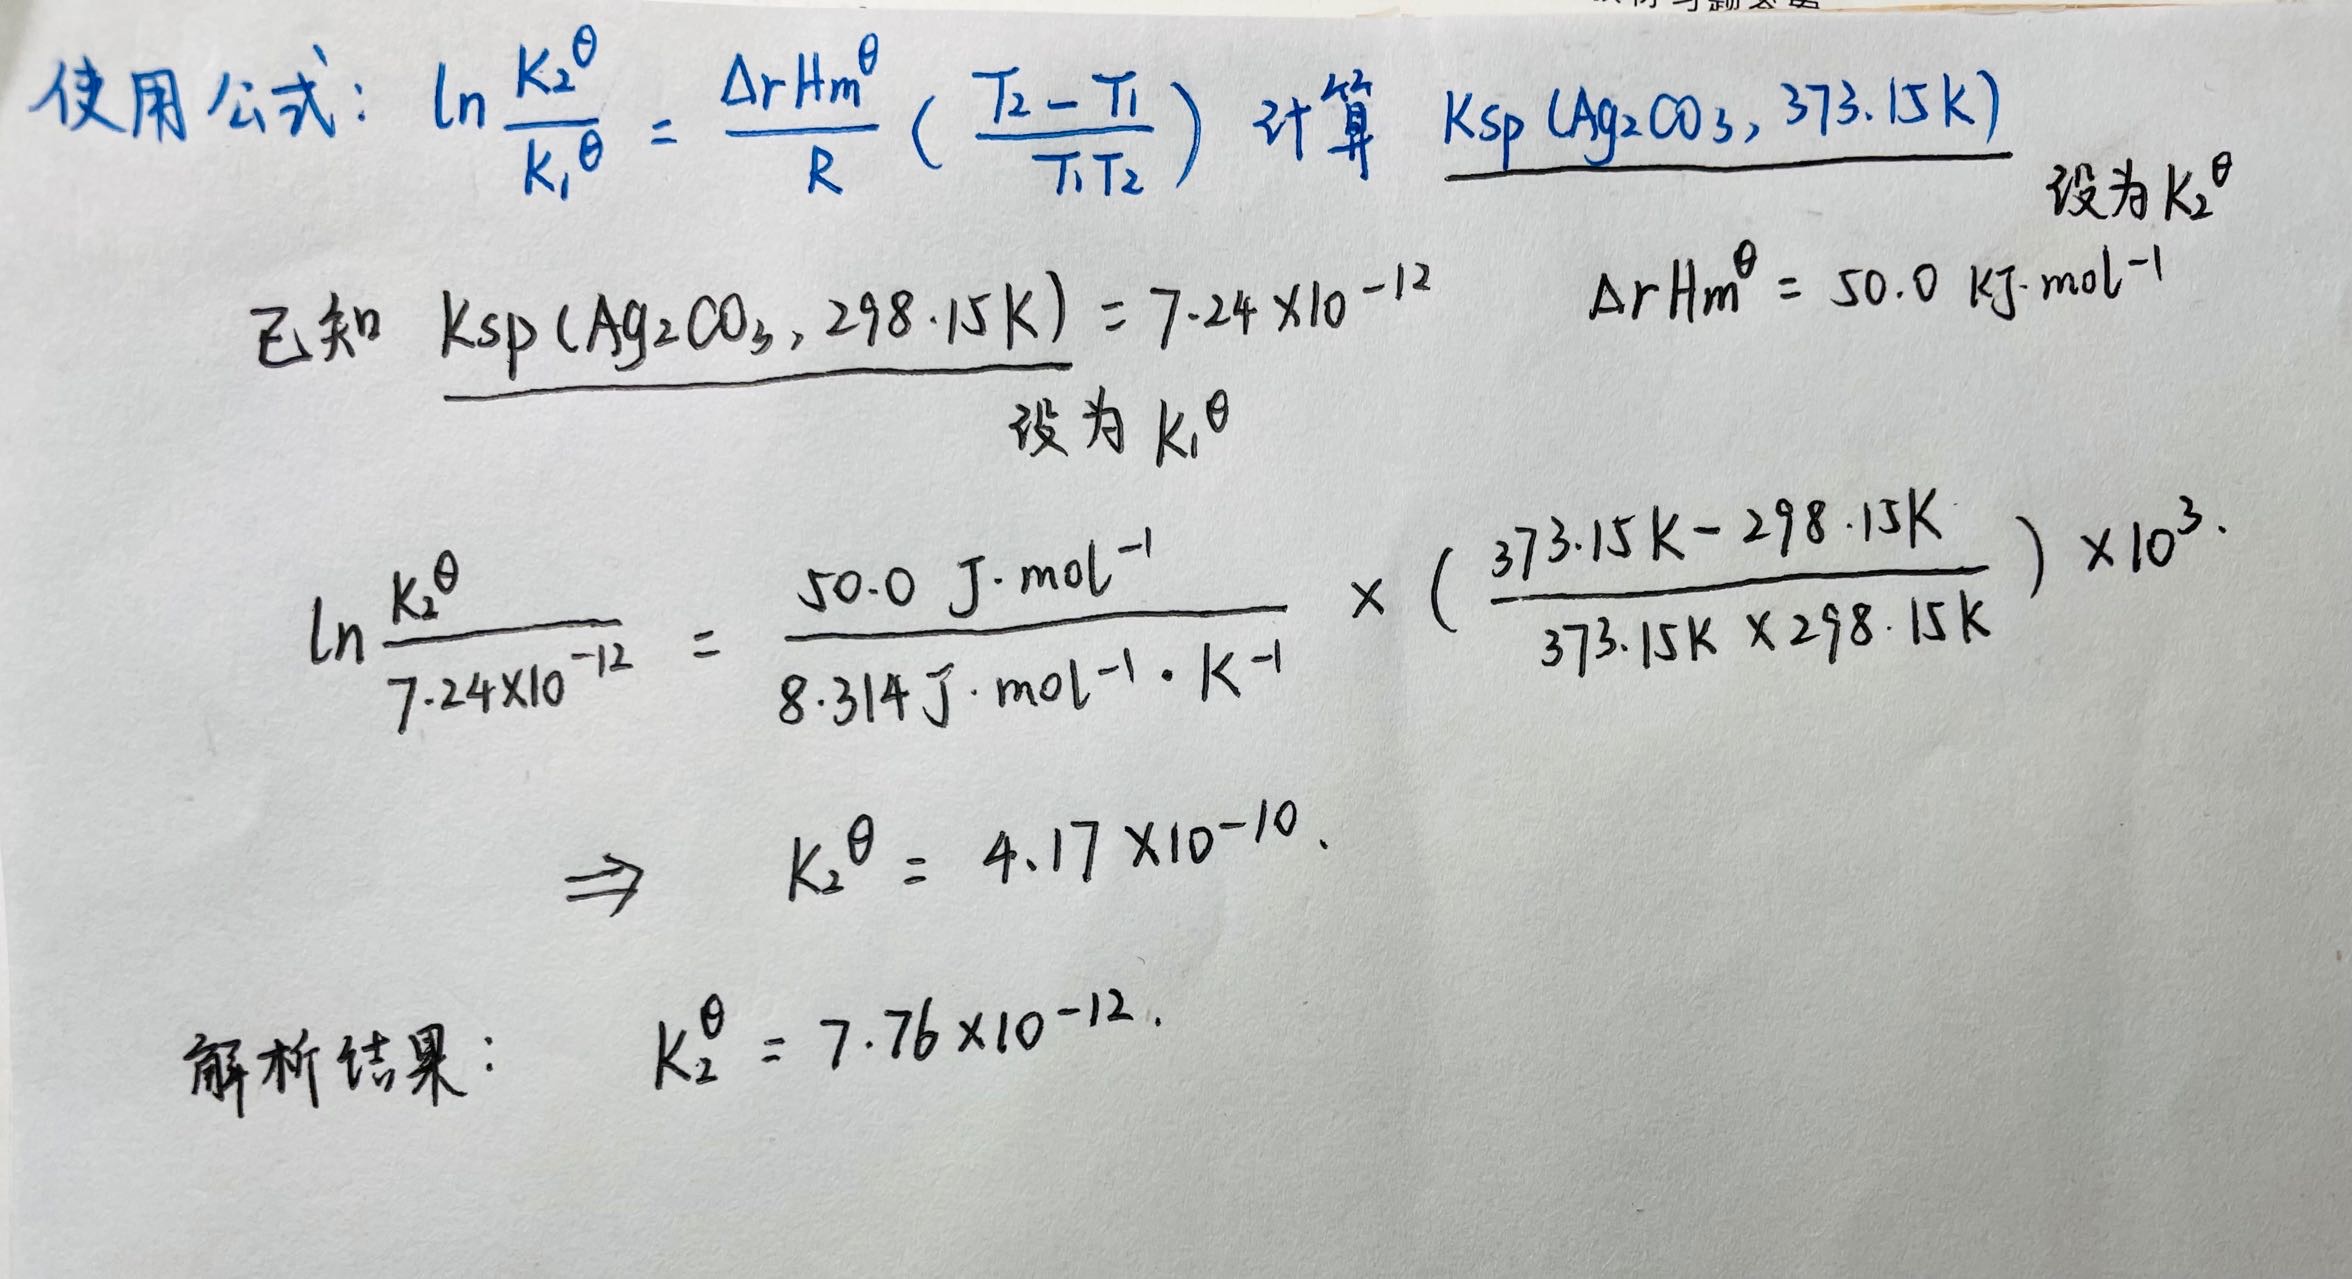 使用公式: ln K₂^θ/K₁^θ = ΔrHm^θ/R ( T₂-T₁/T₁T₂ ) 计算 Ksp (Ag₂CO₃, 373.15K)
设为 K₂^θ
已知 Ksp (Ag₂CO₃, 298.15K) = 7.24×10⁻¹² ΔrHm^θ = 50.0 KJ·mol⁻¹
设为 K₁^θ
ln K₂^θ/7.24×10⁻¹² = 50.0 J·mol⁻¹/8.314 J·mol⁻¹·K⁻¹ × ( 373.15K-298.15K/373.15K×298.15K ) ×10³.
⇒ K₂^θ = 4.17×10⁻¹⁰.
解析结果: K₂^θ = 7.76×10⁻¹².